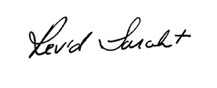 Rev'd Sarah +